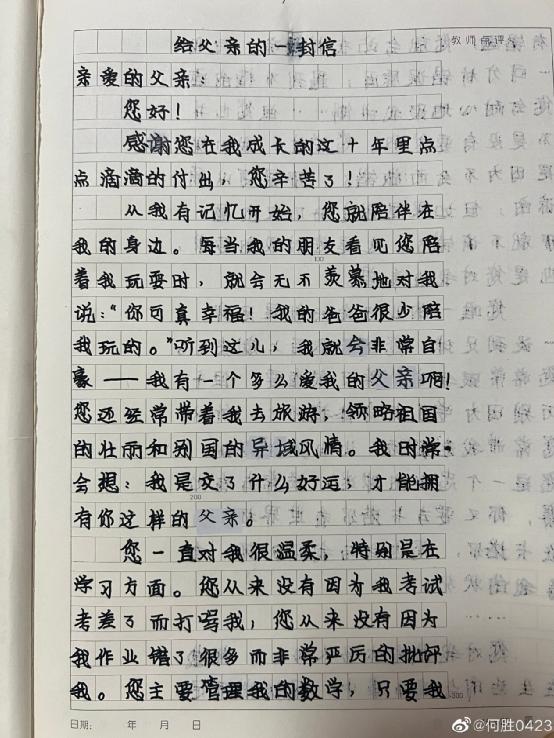 教师点评
给父亲的一封信
亲爱的父亲:
您好!
感谢您在我成长的这十年里点
点滴滴的付出,您辛苦了!
从我有记忆开始,您就陪伴在
我的身边。每当我的朋友看见您陪
着我玩耍时,就会无不羡慕地对我
说:“你可真幸福!我的爸爸很少陪
我玩的。”听到这儿,我就会非常自
豪——我有一个多么爱我的父亲啊!
您还经常带着我去旅游,领略祖国
的壮丽和别国的异域风情。我时常
会想:我是交了什么好运,才能拥
有你这样的父亲。
您一直对我很温柔,特别是在
学习方面。您从来没有因为我考试
考差了而打骂我,您从来没有因为
我作业错了很多而非常严厉的批评
我。您主要管理我的数学,只要我
100
200
300
日期: 年 月 日
@何胜0423